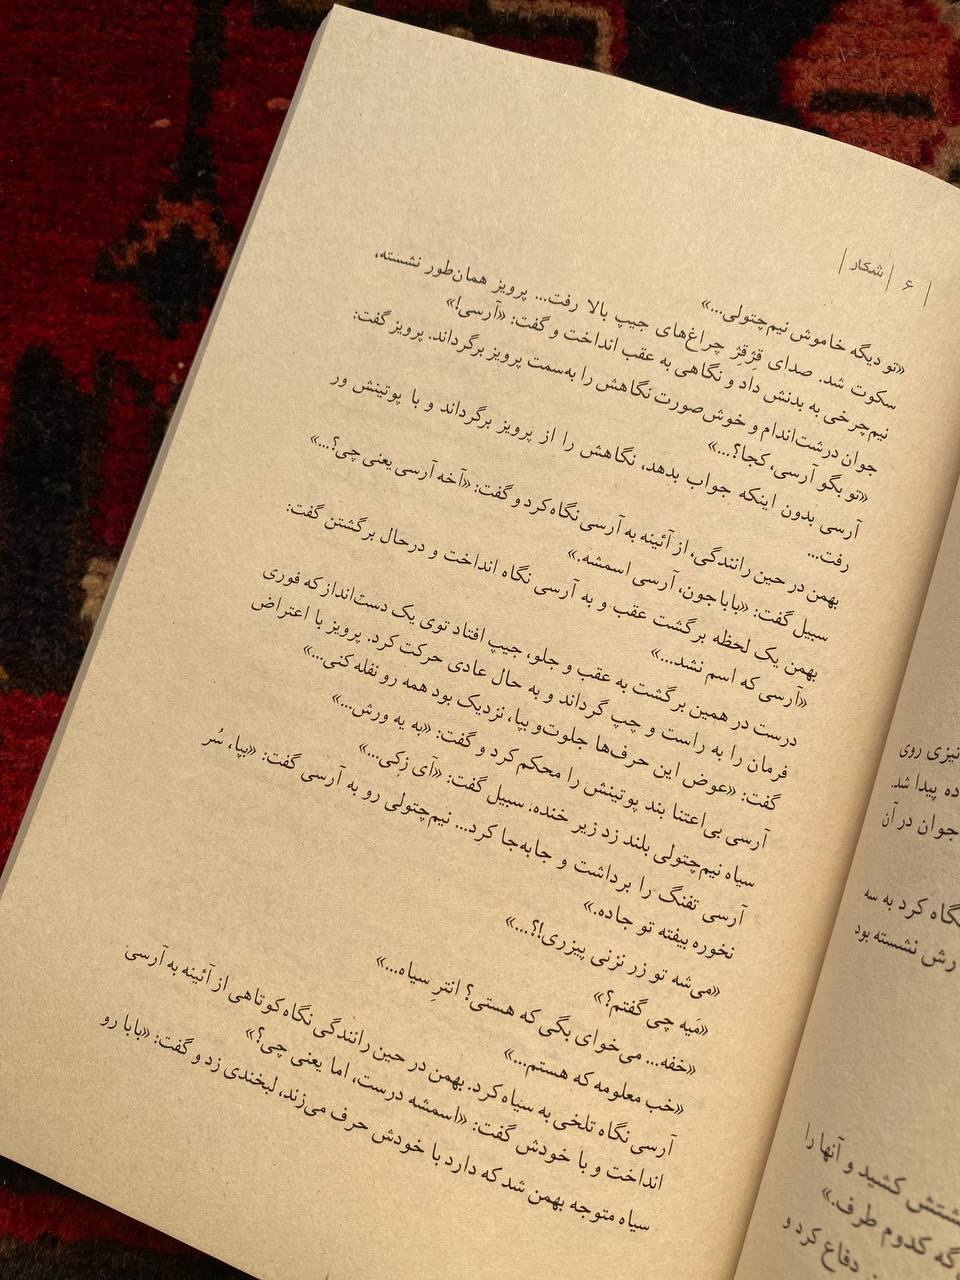 | ۶ | شکار |
«تو دیگه خاموش نیم‌چتولی...»
سکوت شد. صدای قِژقِژِ چراغ‌های جیپ بالا رفت... پرویز همان‌طور نشسته،
نیم‌چرخی به بدنش داد و نگاهی به عقب انداخت و گفت: «آرسی!»
جوان درشت‌اندام و خوش‌صورت نگاهش را به‌سمت پرویز برگرداند. پرویز گفت:
«تو بگو آرسی، کجا؟...»
آرسی بدون اینکه جواب بدهد، نگاهش را از پرویز برگرداند و با پوتینش ور
رفت...
بهمن در حین رانندگی، از آئینه به آرسی نگاه کرد و گفت: «آخه آرسی یعنی چی؟...»
سبیل گفت: «باباجون، آرسی اسمشه.»
بهمن یک لحظه برگشت عقب و به آرسی نگاه انداخت و درحال برگشتن گفت:
«آرسی که اسم نشد...»
درست در همین برگشت به عقب و جلو، جیپ افتاد توی یک دست‌انداز که فوری
فرمان را به راست و چپ گرداند و به حال عادی حرکت کرد. پرویز با اعتراض
گفت: «عوض این حرف‌ها جلوت‌و بپا، نزدیک بود همه رو نفله کنی...»
آرسی بی‌اعتنا بند پوتینش را محکم کرد و گفت: «به یه ورش...»
سیاه نیم‌چتولی بلند زد زیر خنده. سبیل گفت: «آی زِکی...»
آرسی تفنگ را برداشت و جابه‌جا کرد... نیم‌چتولی رو به آرسی گفت: «بپا، سُر
نخوره بیفته تو جاده.»
«می‌شه تو زر نزنی پیزری!؟...»
«مَیه چی گفتم؟»
«خفه... می‌خوای بگی که هستی؟ انترِ سیاه...»
«خب معلومه که هستم...»
آرسی نگاه تلخی به سیاه کرد. بهمن در حین رانندگی نگاه کوتاهی از آئینه به آرسی
انداخت و با خودش گفت: «اسمشه درست، اما یعنی چی؟»
سیاه متوجه بهمن شد که دارد با خودش حرف می‌زند، لبخندی زد و گفت: «بابا رو
نیزی روی
ده پیدا شد.
جوان در آن
نگاه کرد به سه
رش نشسته بود
کشید و آنها را
گه کدوم طرف.»
دفاع کرد و